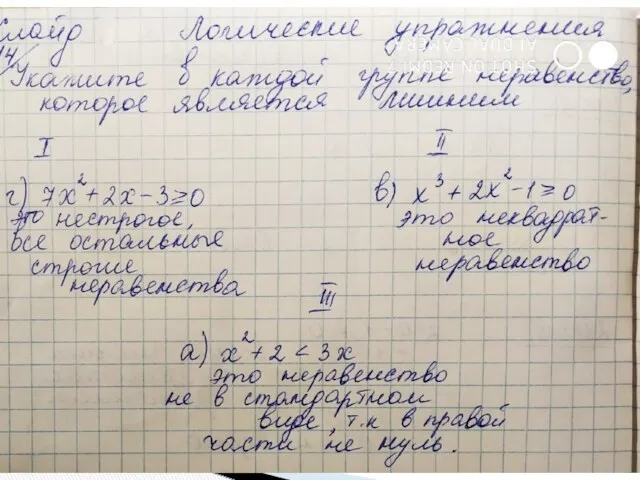 Слайд Логические упражнения
14
Укажите в каждой группе неравенство,
которое является лишним
I
II
г) 7x² + 2x - 3 ≥ 0
это нестрогое,
все остальные
строгие
неравенства
в) x³ + 2x² - 1 ≥ 0
это неквадрат-
ное
неравенство
III
а) x² + 2 < 3x
это неравенство
не в стандартном
виде, т.к в правой
части не нуль.
SHOT ON REDMI 7
AI DUAL CAMERA